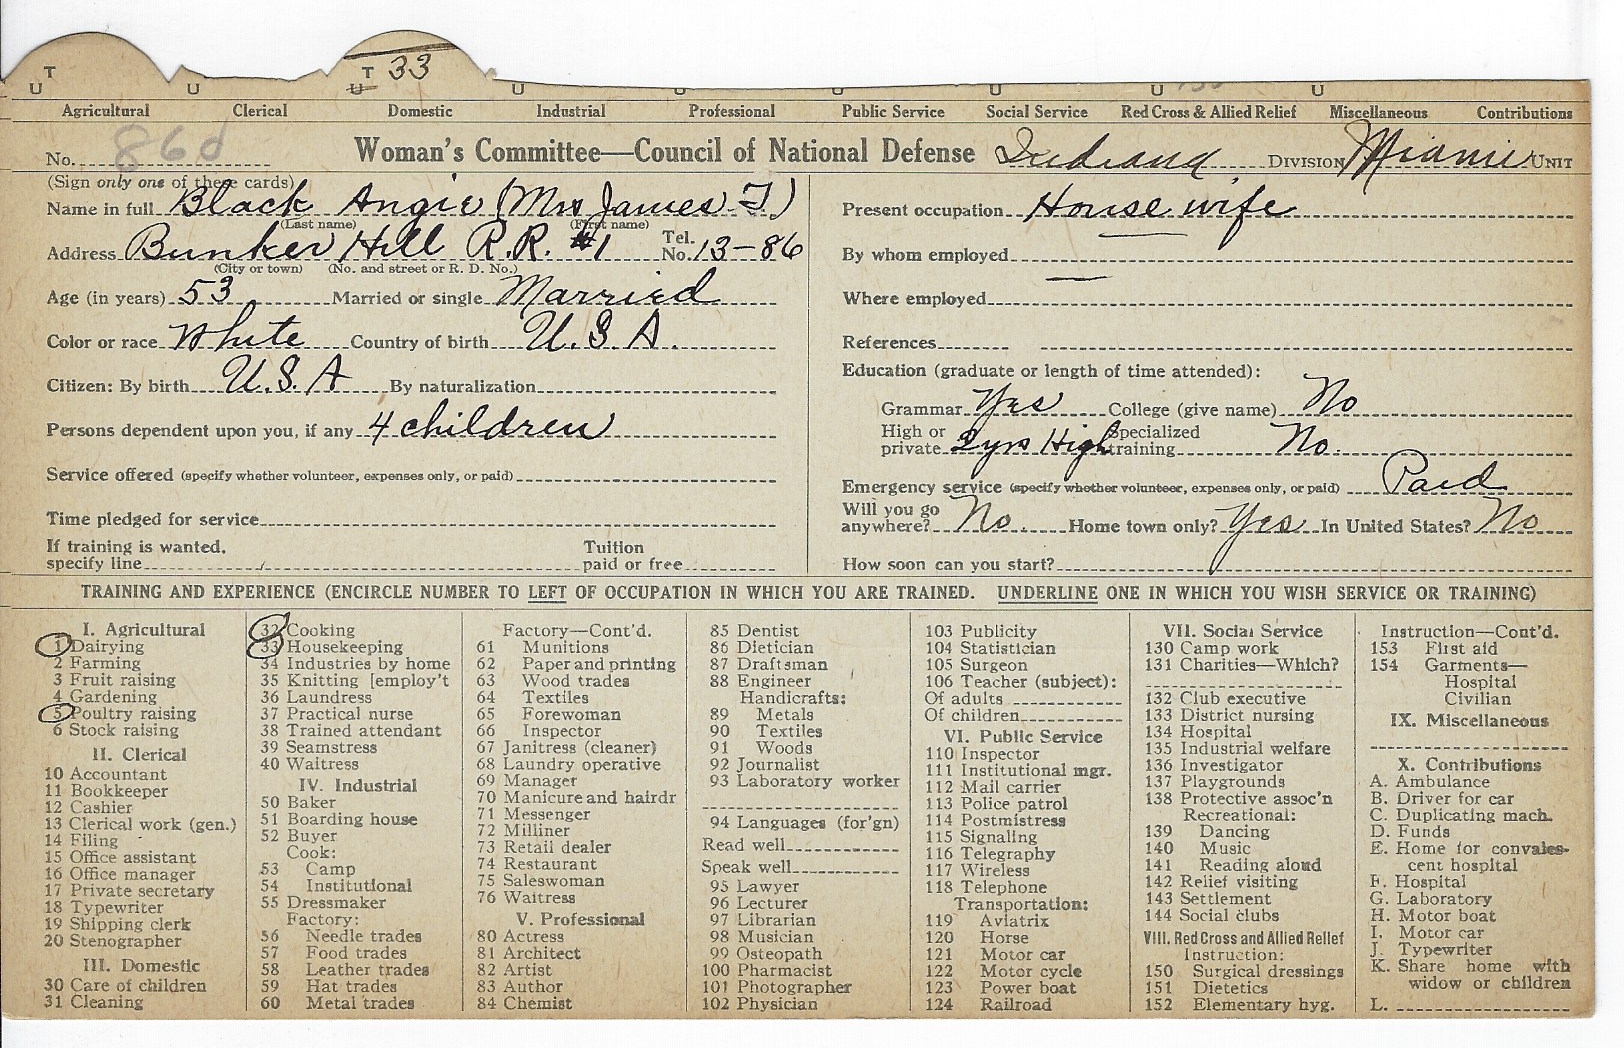 T T 33
U U U U U U U U U
Agricultural Clerical Domestic Industrial Professional Public Service Social Service Red Cross & Allied Relief Miscellaneous Contributions
No. 860 Woman's Committee—Council of National Defense Indiana DIVISION Miami UNIT
(Sign only one of these cards)
Name in full Black Angie (Mrs James T)
(Last name) (First name)
Address Bunker Hill R.R. #1 Tel. No. 13-86
(City or town) (No. and street or R. D. No.)
Age (in years) 53 Married or single Married
Color or race White Country of birth U.S.A.
Citizen: By birth U.S.A By naturalization
Persons dependent upon you, if any 4 children
Service offered (specify whether volunteer, expenses only, or paid)
Time pledged for service
If training is wanted, specify line Tuition paid or free
Present occupation House wife
By whom employed —
Where employed
References
Education (graduate or length of time attended):
Grammar Yes College (give name) No
High or private 2yrs High Specialized training No.
Emergency service (specify whether volunteer, expenses only, or paid) Paid
Will you go anywhere? No. Home town only? Yes In United States? No
How soon can you start?
TRAINING AND EXPERIENCE (ENCIRCLE NUMBER TO LEFT OF OCCUPATION IN WHICH YOU ARE TRAINED. UNDERLINE ONE IN WHICH YOU WISH SERVICE OR TRAINING)
I. Agricultural
1 Dairying
2 Farming
3 Fruit raising
4 Gardening
5 Poultry raising
6 Stock raising
II. Clerical
10 Accountant
11 Bookkeeper
12 Cashier
13 Clerical work (gen.)
14 Filing
15 Office assistant
16 Office manager
17 Private secretary
18 Typewriter
19 Shipping clerk
20 Stenographer
III. Domestic
30 Care of children
31 Cleaning
32 Cooking
33 Housekeeping
34 Industries by home
35 Knitting [employ't
36 Laundress
37 Practical nurse
38 Trained attendant
39 Seamstress
40 Waitress
IV. Industrial
50 Baker
51 Boarding house
52 Buyer
Cook:
53 Camp
54 Institutional
55 Dressmaker
Factory:
56 Needle trades
57 Food trades
58 Leather trades
59 Hat trades
60 Metal trades
Factory—Cont'd.
61 Munitions
62 Paper and printing
63 Wood trades
64 Textiles
65 Forewoman
66 Inspector
67 Janitress (cleaner)
68 Laundry operative
69 Manager
70 Manicure and hairdr
71 Messenger
72 Milliner
73 Retail dealer
74 Restaurant
75 Saleswoman
76 Waitress
V. Professional
80 Actress
81 Architect
82 Artist
83 Author
84 Chemist
85 Dentist
86 Dietician
87 Draftsman
88 Engineer
Handicrafts:
89 Metals
90 Textiles
91 Woods
92 Journalist
93 Laboratory worker
94 Languages (for'gn)
Read well
Speak well
95 Lawyer
96 Lecturer
97 Librarian
98 Musician
99 Osteopath
100 Pharmacist
101 Photographer
102 Physician
103 Publicity
104 Statistician
105 Surgeon
106 Teacher (subject):
Of adults
Of children
VI. Public Service
110 Inspector
111 Institutional mgr.
112 Mail carrier
113 Police patrol
114 Postmistress
115 Signaling
116 Telegraphy
117 Wireless
118 Telephone
Transportation:
119 Aviatrix
120 Horse
121 Motor car
122 Motor cycle
123 Power boat
124 Railroad
VII. Social Service
130 Camp work
131 Charities—Which?
132 Club executive
133 District nursing
134 Hospital
135 Industrial welfare
136 Investigator
137 Playgrounds
138 Protective assoc'n
Recreational:
139 Dancing
140 Music
141 Reading aloud
142 Relief visiting
143 Settlement
144 Social clubs
VIII. Red Cross and Allied Relief
Instruction:
150 Surgical dressings
151 Dietetics
152 Elementary hyg.
Instruction—Cont'd.
153 First aid
154 Garments—
Hospital
Civilian
IX. Miscellaneous
X. Contributions
A. Ambulance
B. Driver for car
C. Duplicating mach.
D. Funds
E. Home for convales-
cent hospital
F. Hospital
G. Laboratory
H. Motor boat
I. Motor car
J. Typewriter
K. Share home with
widow or children
L.